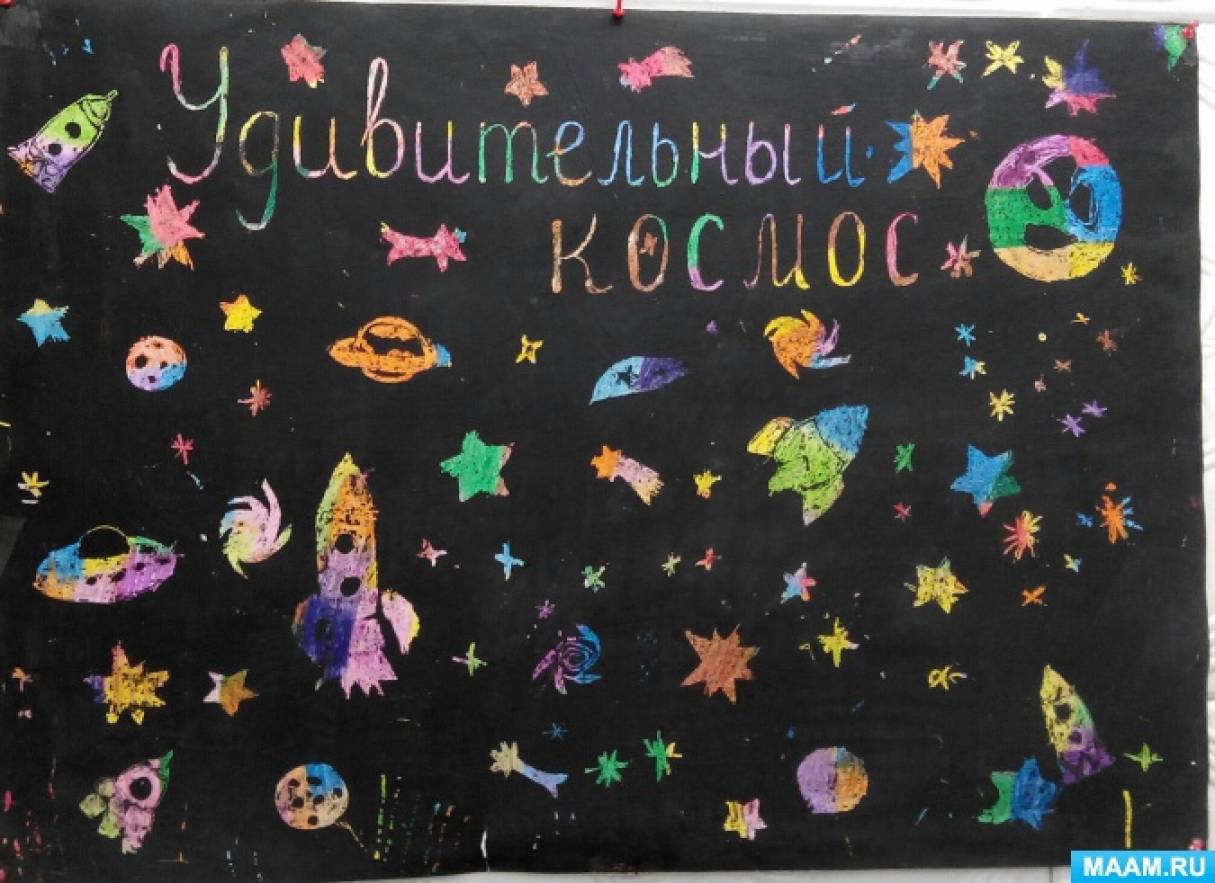 Удивительный
космос
MAAM.RU